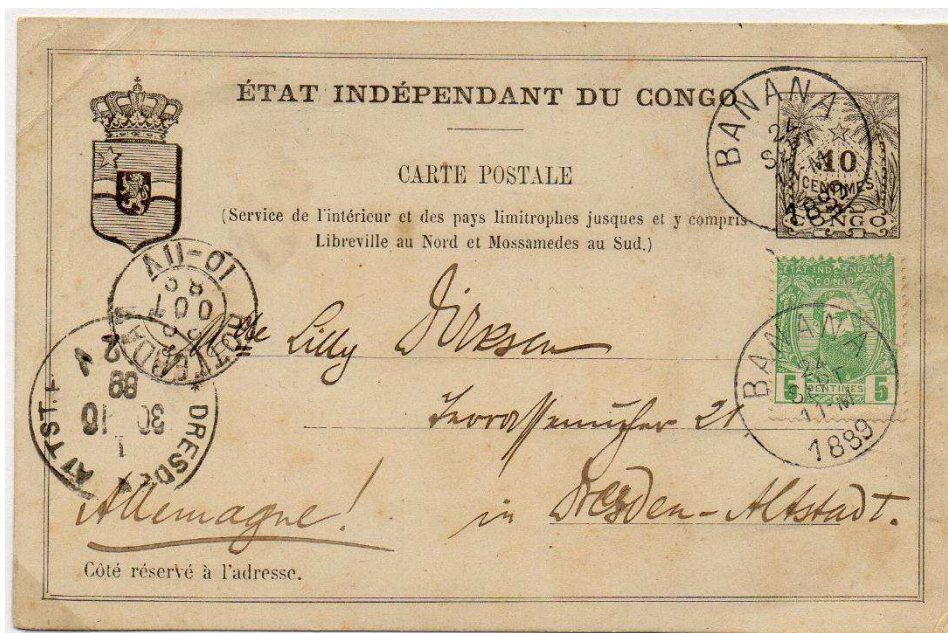 ÉTAT INDÉPENDANT DU CONGO
CARTE POSTALE
(Service de l'intérieur et des pays limitrophes jusques et y compris
Libreville au Nord et Mossamedes au Sud.)
BANANA
24
SEPT
11-M
1889
10
CENTIMES
CONGO
ÉTAT INDÉPENDANT
DU CONGO
5 CENTIMES 5
BANANA
24
SEPT
11-M
1889
ROTTERDAM
OCT
10-11V
DRESDEN
ALTST. 1
30 10
89
Lilly Dirksen
Terrassenufer 21
in Dresden-Altstadt.
Allemagne!
Côté réservé à l'adresse.